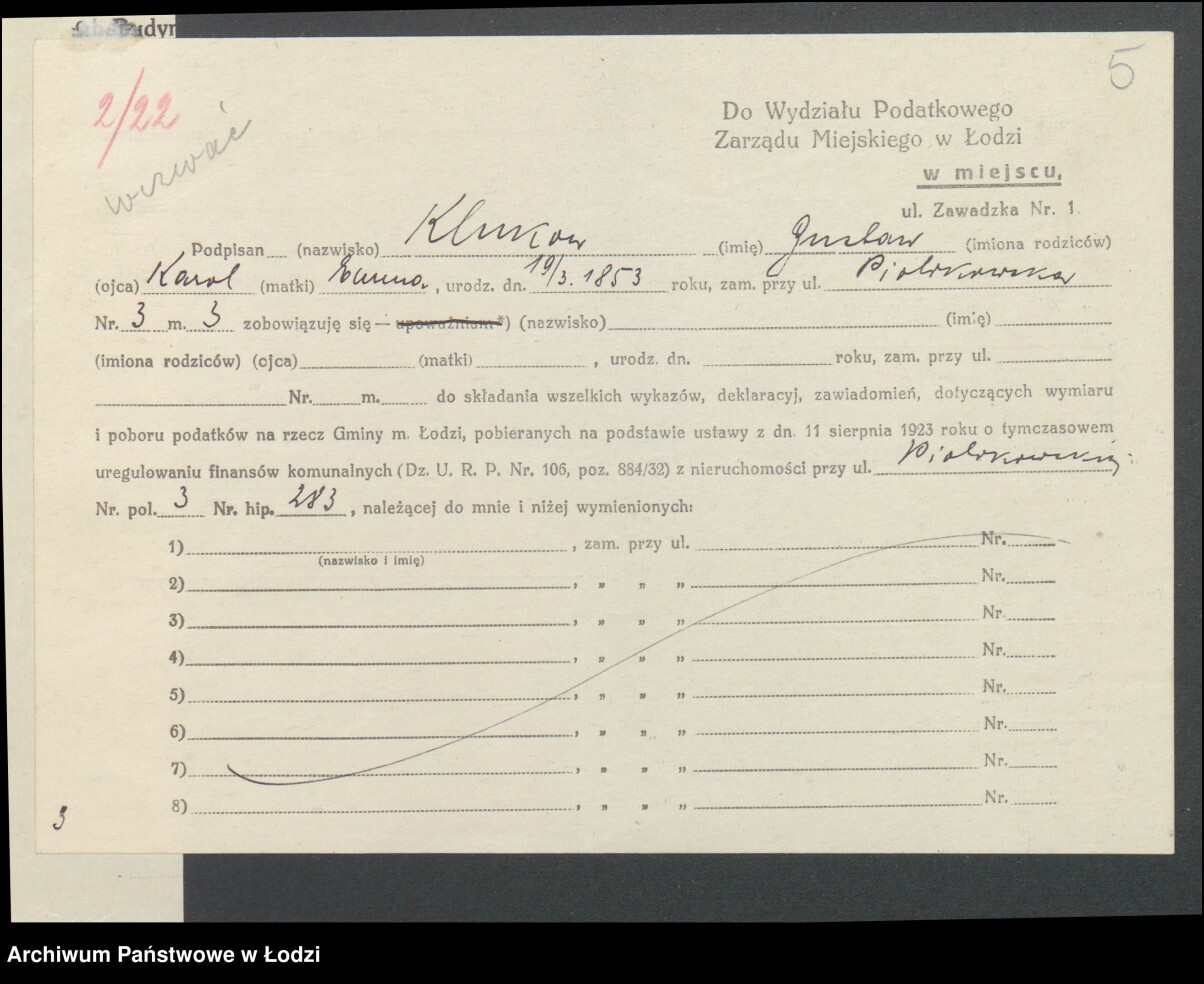 5
2/22
wezwać
Do Wydziału Podatkowego
Zarządu Miejskiego w Łodzi
w miejscu,
ul. Zawadzka Nr. 1.
Podpisan (nazwisko) Klukow (imię) Gustaw (imiona rodziców)
(ojca) Karol (matki) , urodz. dn. 19/3. 1853 roku, zam. przy ul. Piotrkowska
Nr. 3 m. 3 zobowiązuję się — upoważniam *) (nazwisko) (imię)
(imiona rodziców) (ojca) (matki) , urodz. dn. roku, zam. przy ul.
Nr. m. do składania wszelkich wykazów, deklaracyj, zawiadomień, dotyczących wymiaru
i poboru podatków na rzecz Gminy m. Łodzi, pobieranych na podstawie ustawy z dn. 11 sierpnia 1923 roku o tymczasowem
uregulowaniu finansów komunalnych (Dz. U. R. P. Nr. 106, poz. 884/32) z nieruchomości przy ul. Piotrkowskiej
Nr. pol. 3 Nr. hip. 283 , należącej do mnie i niżej wymienionych:
1) , zam. przy ul. Nr.
(nazwisko i imię)
2) , „ „ „ Nr.
3) , „ „ „ Nr.
4) , „ „ „ Nr.
5) , „ „ „ Nr.
6) , „ „ „ Nr.
7) , „ „ „ Nr.
8) , „ „ „ Nr.
3
Archiwum Państwowe w Łodzi